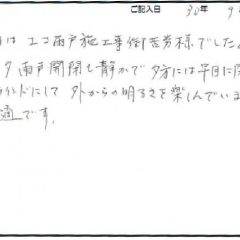 ご記入日 30年 9
はエコ雨戸施工事御苦労様でした
雨戸開閉も静かで夕方には早目に
ラインドにして外からの明るさを楽しんでいま
適です。